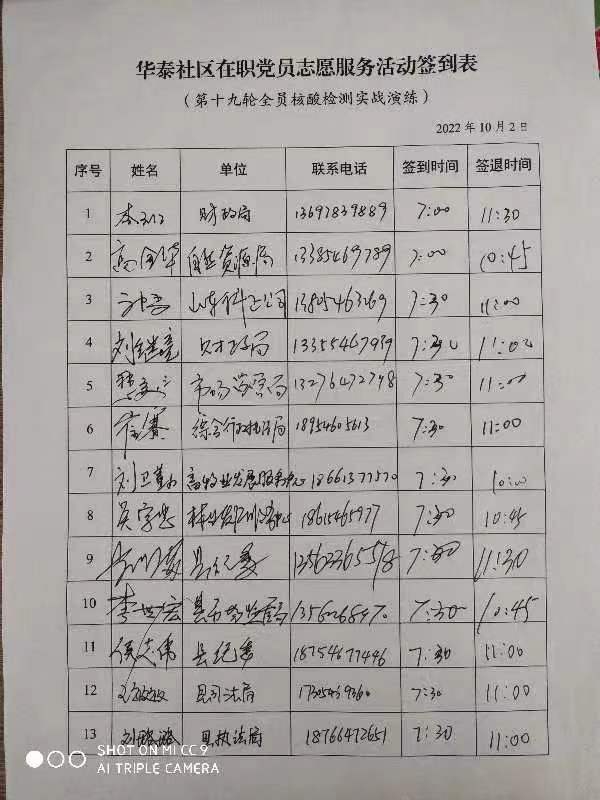 华泰社区在职党员志愿服务活动签到表
（第十九轮全员核酸检测实战演练）
2022年10月2日
序号 姓名 单位 联系电话 签到时间 签退时间
1 财政局 13697839889 7:00 11:30
2 自然资源局 13385469789 7:00 10:45
3 公司 13805463169 7:30 11:00
4 刘继亮 财政局 13355467939 7:30 11:00
5 市场监管局 13276472748 7:30 11:00
6 崔赛 综合行政执法局 18954605613 7:30 11:00
7 刘卫 畜牧业发展服务中心 18661377570 7:30 10:00
8 吴学忠 18615465977 7:30 10:45
9 县纪委 7:30 11:30
10 李世宏 县市场监管局 7:30 10:45
11 侯志伟 县纪委 18754677446 7:30 11:00
12 县司法局 17305469360 7:30 11:00
13 县执法局 18766472651 7:30 11:00
SHOT ON MI CC9
AI TRIPLE CAMERA